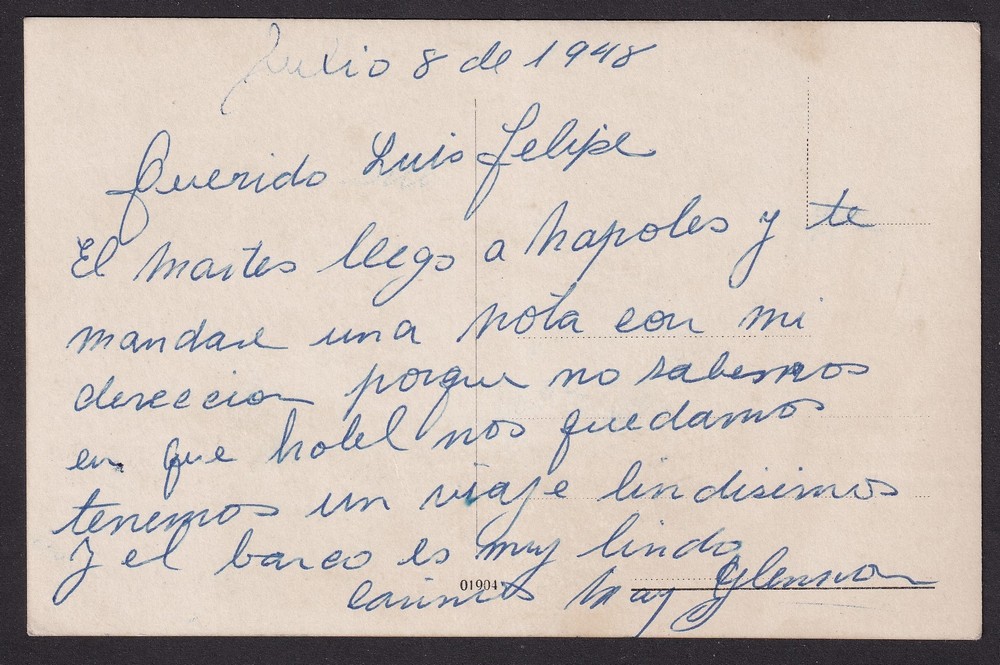 Julio 8 de 1948
Querido Luis Felipe
El Martes llego a Napoles y te
mandare una nota con mi
dereccion porque no sabemos
en que hotel nos quedamos
tenemos un viaje lindisimos
y el barco es muy lindo
01904
Carinios May Glennon